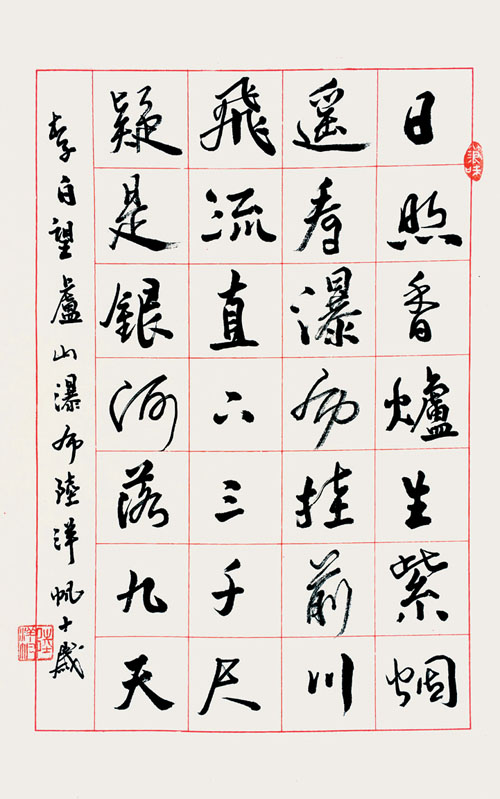 日照香爐生紫烟
遥看瀑布挂前川
飛流直下三千尺
疑是銀河落九天
李白望盧山瀑布陸洋帆十歲